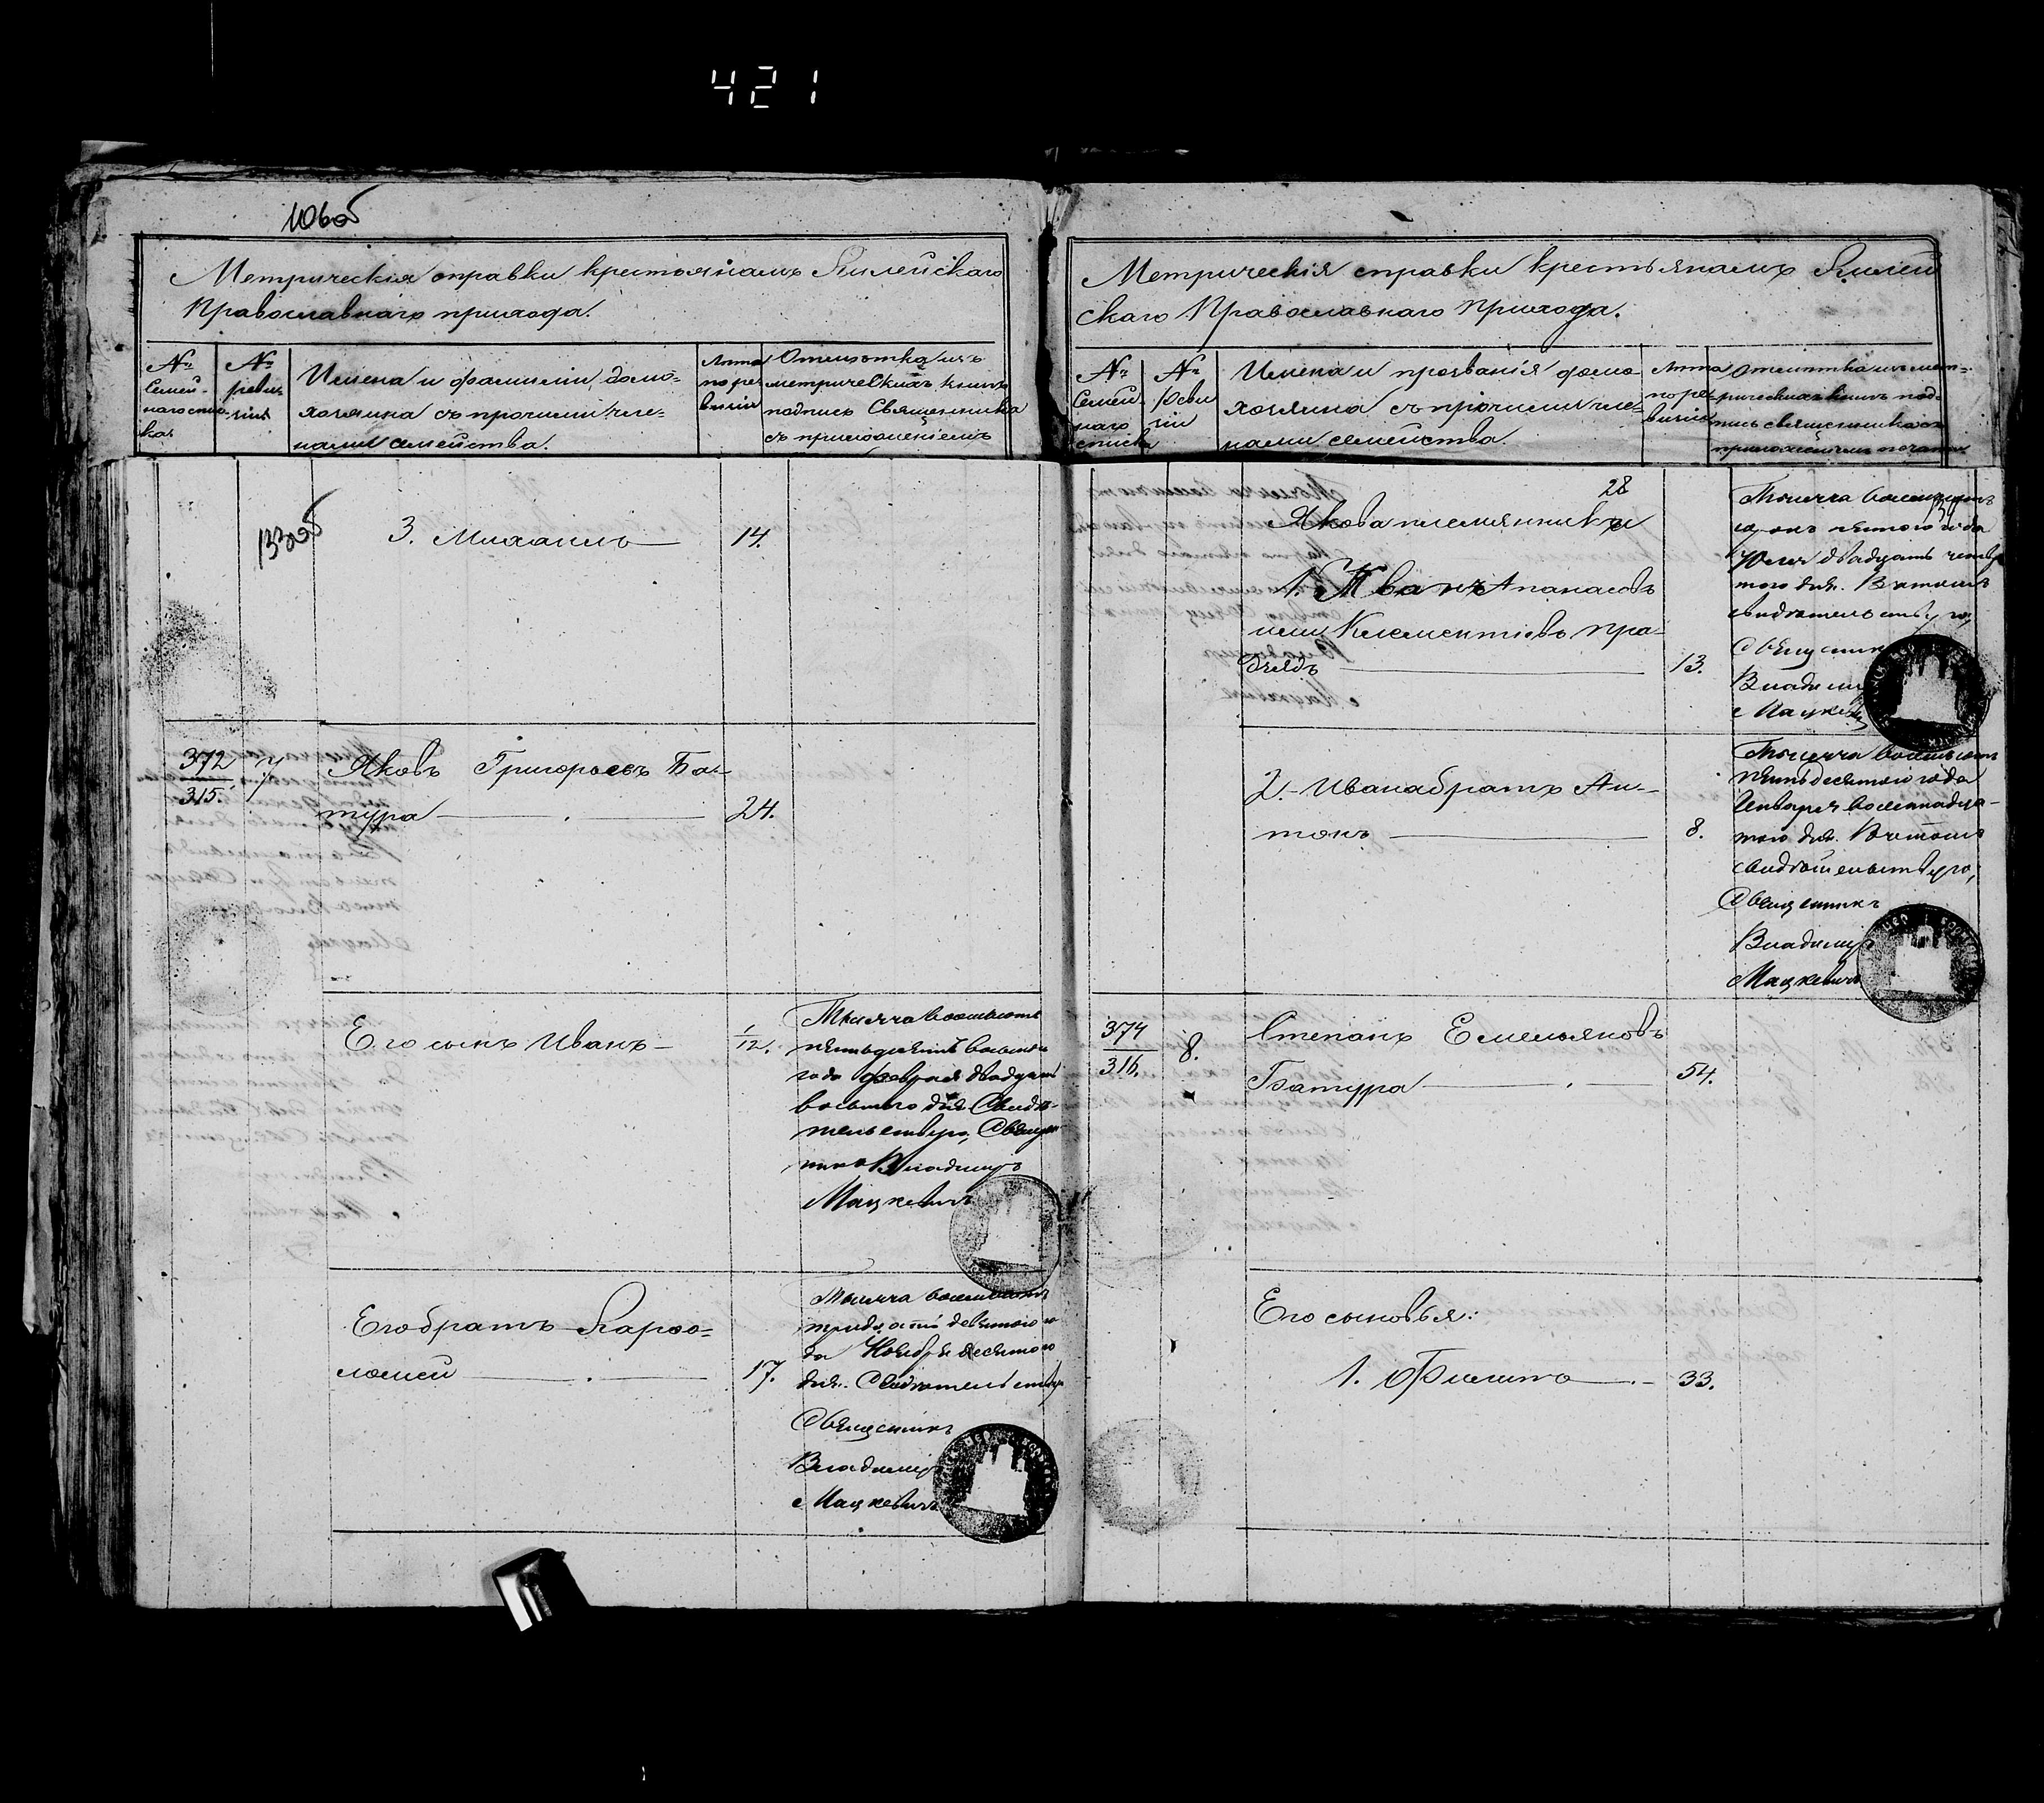 421
106об
Метрическія справки крестьянамъ Килейскаго
Православнаго прихода.
№ Семей-наго списка
№ ревизіи
Имена и фамиліи домо-
хозяина съ прочими чле-
нами семейства.
Лѣта по ревизіи
Отмѣтка изъ
метрическихъ книгъ
подпись Священника
съ приложеніемъ
133об
3. Михаилъ 14.
372
315.
7
Яковъ Григорьевъ Ба-
тура 24.
Его сынъ Иванъ 1/12.
Тысяча восемьсотъ
пятьдесятъ восьмого
года февраля двадцать
восьмого дня Свидѣ-
тельствую, Священ
никъ Владимиръ
Мацкевичъ
Его братъ Варфо=
ломей 17.
Тысяча восемьсотъ
тридцать девятого го
да Ноября десятого
дня. Свидѣтельствую
Священникъ
Владимиръ
Мацкевичъ
Метрическія справки крестьянамъ Килей
скаго Православнаго Прихода.
№ Семей наго списка
№ Реви зіи
Имена и прозванія домо-
хозяина съ прочими чле-
нами семейства.
Лѣта по ревизіи
Отмѣтка изъ мет-
рическихъ книгъ под-
пись священника съ
приложеніемъ печати
28
Якова племянники
1. Иванъ Апанасовъ
или Клементіевъ пра-
дѣдъ 13.
Тысяча восемьсотъ
Юля двадцать четвер
того дня. Въ томъ
свидѣтельствую,
Священникъ
Владимиръ
Мацкевичъ
2. Ивана братъ Ан-
тонъ 8.
Тысяча восемьсотъ
пятьдесятого года
Января восемнадца-
того дня. Въ томъ
свидѣтельствую,
Священникъ
Владимиръ
Мацкевичъ
374
316.
8.
Степанъ Емельяновъ
Батура 54.
Его сыновья:
1. Филипъ 33.